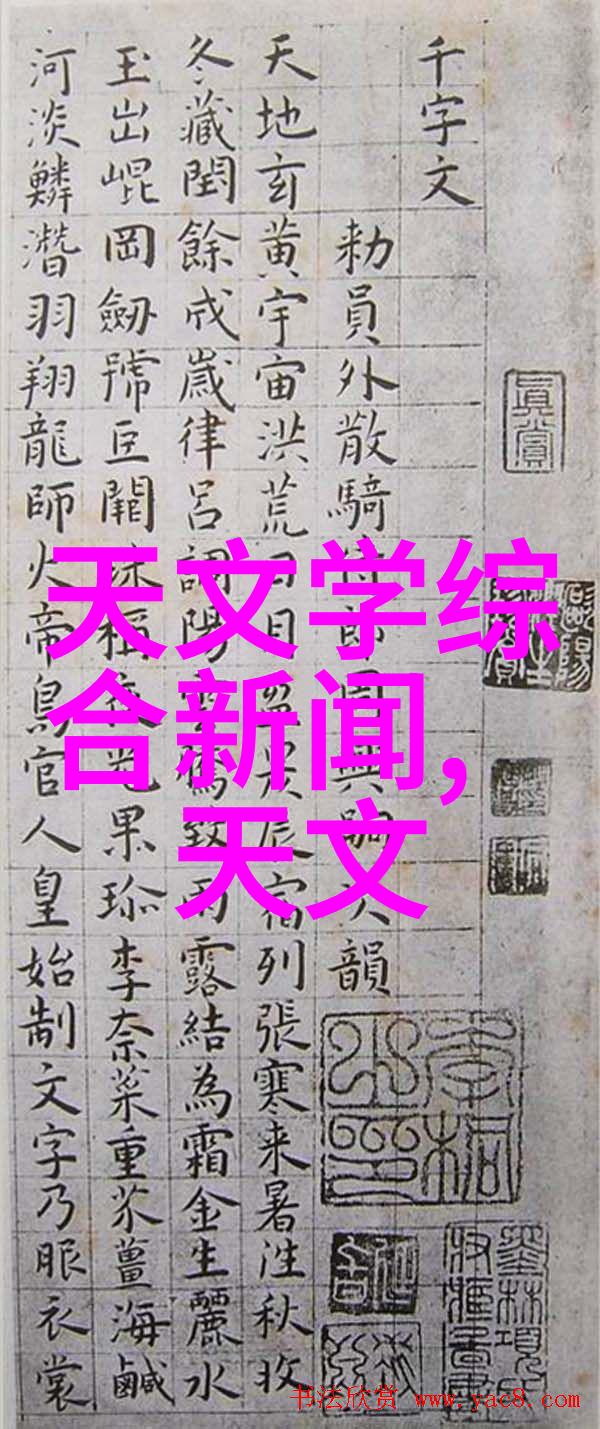 千字文
勑員外散騎侍郎周興嗣次韻
天地玄黃宇宙洪荒日月盈昃辰宿列張寒来暑往秋收
冬藏閏餘成歲律呂調陽雲騰致雨露結為霜金生麗水
玉出崐岡劒號巨闕珠稱夜光果珎李柰菜重芥薑海鹹
河淡鱗潛羽翔龍師火帝鳥官人皇始制文字乃服衣裳
真賞
天文学综
合新闻,
天文
书法欣赏 www.yac8.com